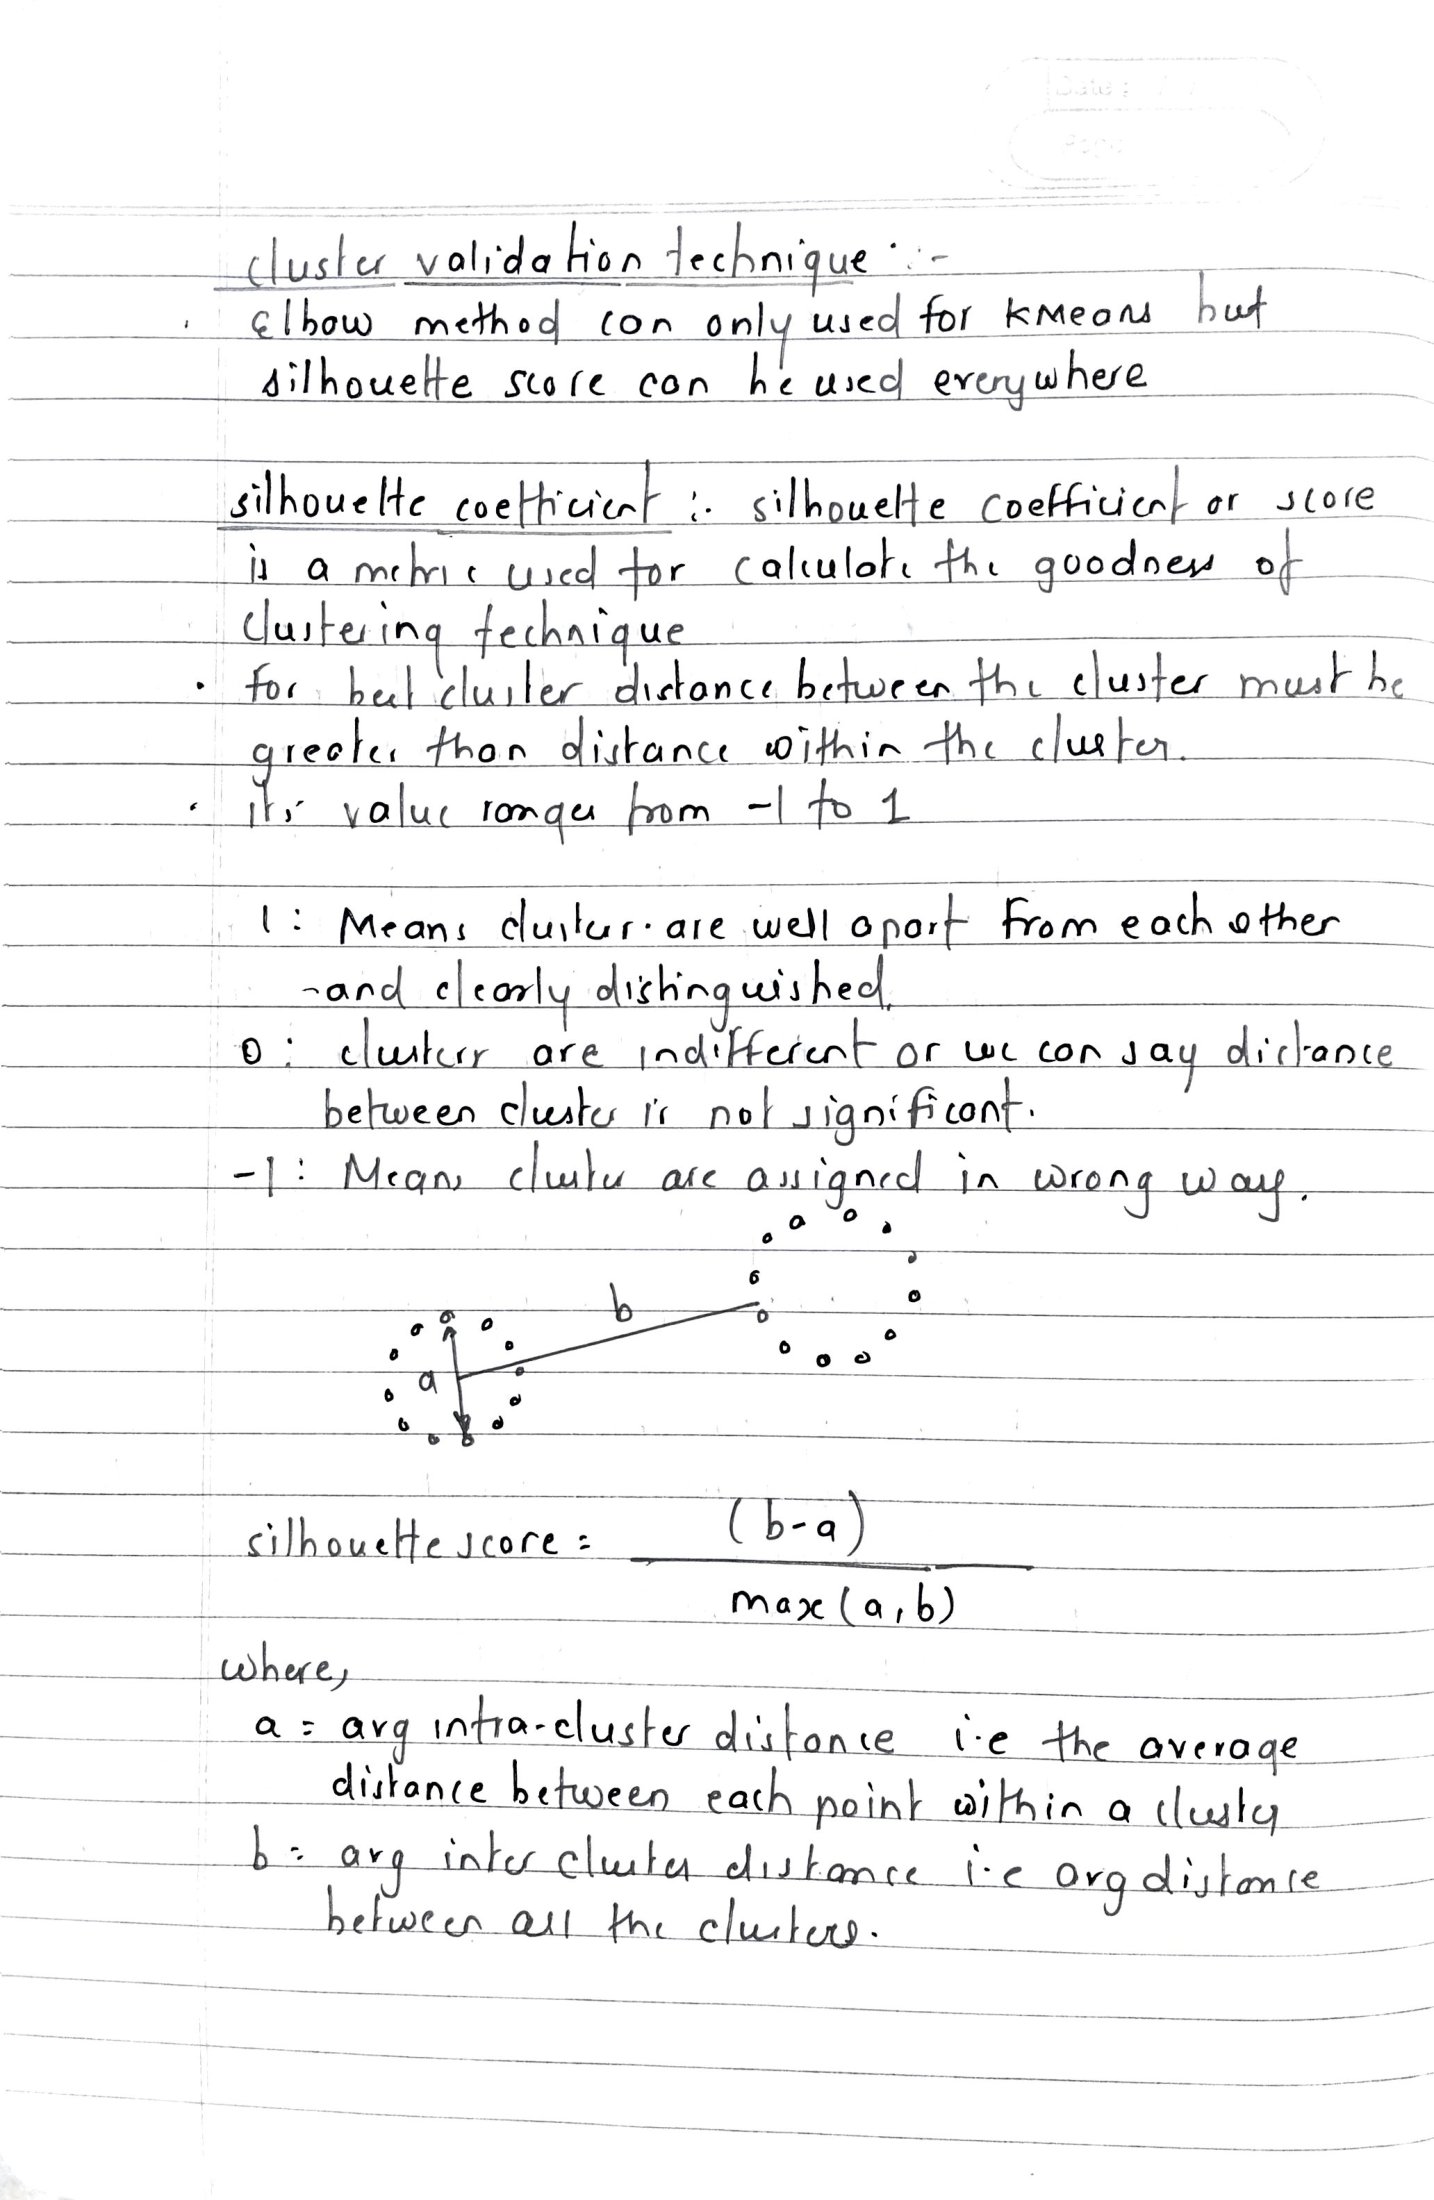 Date :
Page
cluster validation technique :-
. Elbow method can only used for KMeans but
silhouette score can be used everywhere
silhouette coefficient :. silhouette coefficient or score
is a metric used for calculate the goodness of
clustering technique
. for best cluster distance between the cluster must be
greater than distance within the cluster.
. it's value ranges from -1 to 1
1 : Means clusters are well apart from each other
and clearly distinguished.
0 : clusters are indifferent or we can say distance
between cluster is not significant.
-1 : Means cluster are assigned in wrong way.
b
a
silhouette score = (b-a)
max (a, b)
where,
a = avg intra-cluster distance i.e the average
distance between each point within a cluster
b = avg inter cluster distance i.e avg distance
between all the clusters.